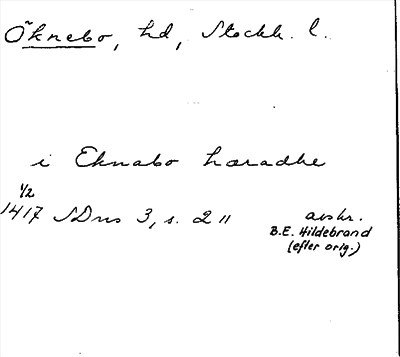 Öknebo, hd, Stockh. l.
i Eknabo hæradhe
1/2
1417 SDns 3, s. 211
avskr.
B.E. Hildebrand
(efter orig.)